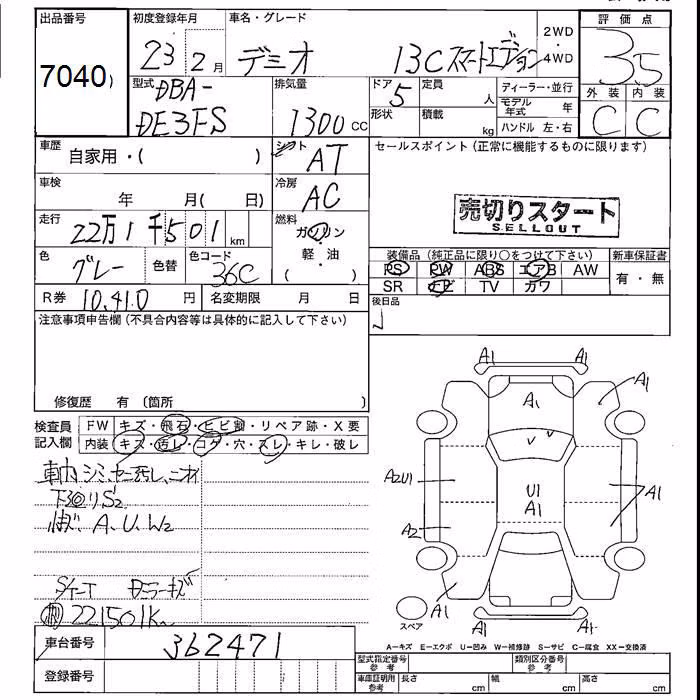 出品番号 初度登録年月 車名・グレード 2WD 評価点
7040 23 2月 デミオ 13C スマートエディション ・4WD 3.5
型式 DBA- 排気量 ドア 5 定員 人 ディーラー・並行 外装 内装
DE3FS 1300 CC 形状 積載 kg モデル年式 年 C C
ハンドル 左・右
車歴 自家用・( ) シフト AT セールスポイント (正常に機能するものに限ります)
車検 年 月( 日) 冷房 AC
売切りスタート
SELLOUT
走行 22万1千501 km 燃料 ガソリン
軽・油
( )
色 グレー 色替 色コード 36C
装備品 (純正品に限り○をつけて下さい) 新車保証書
PS PW ABS エアB AW 有・無
SR ナビ TV カワ
R券 10,410 円 名変期限 月 日 後日品
注意事項申告欄 (不具合内容等は具体的に記入して下さい)
修復歴 有 (箇所 )
検査員 FW キズ・飛石・ヒビ割・リペア跡・X要
記入欄 内装 キズ・汚レ・コゲ・穴・スレ・キレ・破レ
下回りS2
A、U、W2
221501K
A1 A1
A1 A1
A2U1 U1 A1
A1
A2
A1 A1
A1 A1
スペア
A-キズ E-エクボ U-凹み W-補修跡 S-サビ C-腐食 XX-交換済
車台番号 362471
登録番号
型式指定番号 参考 類別区分番号 参考
車庫証明用 参考 長さ cm 幅 cm 高さ cm